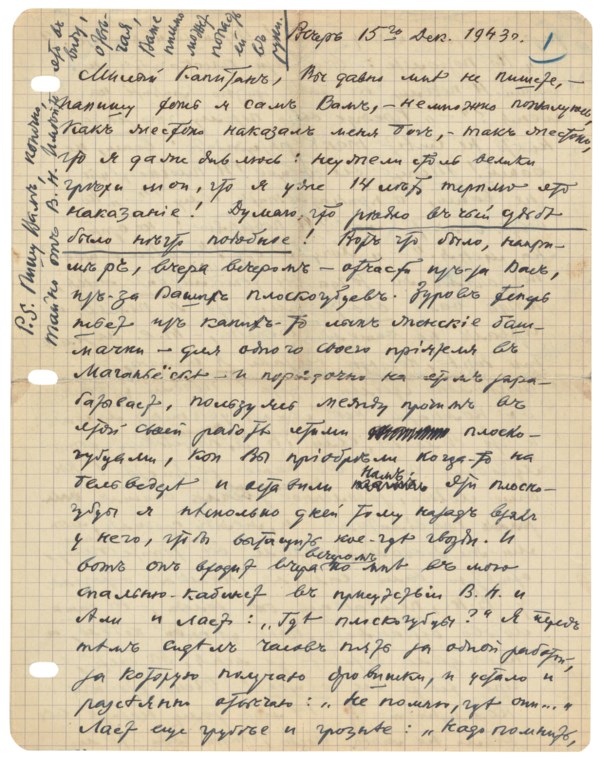 Вечеръ 15го Дек. 1943 г.
1
Милый Капитанъ, Вы давно мнѣ не пишете, —
напишу хоть я самъ Вамъ, — немножко пожалуюсь.
Какъ жестоко наказалъ меня Богъ, — такъ жестоко,
что я даже дивлюсь: неужели столь велики
грѣхи мои, что я уже 14 лѣтъ терплю это
наказаніе! Думаю, что рѣдко въ чьей судьбѣ
было нѣчто подобное! Вотъ что было, напри-
мѣръ, вчера вечеромъ — отчасти изъ-за Васъ,
изъ-за Вашихъ плоскогубцевъ. Зуровъ теперь
шьетъ изъ какихъ-то женскіе баш-
мачки — для одного своего пріятеля въ
и порядочно на этомъ зара-
батываетъ, пользуясь между прочимъ въ
этой своей работѣ этими плоско-
губцами, кои Вы пріобрѣли когда-то на
Бельведерѣ и оставили намъ; эти плоско-
губцы я нѣсколько дней тому назадъ взялъ
у него, чтобы вытащить кое-гдѣ гвозди. И
вотъ онъ входитъ вчера вечеромъ ко мнѣ въ мою
спальню-кабинетъ въ присутствіи В. Н. и
Али и лаетъ: „Гдѣ плоскогубцы?“ Я передъ
тѣмъ сидѣлъ часовъ пять за одной работой,
за которую получаю грошики, и устало и
разсѣянно отвѣчаю: „Не помню, гдѣ они...“
Лаетъ еще грубѣе и грознѣе: „Надо помнить,
P.S. Пишу Вамъ, конечно,
тайно отъ В. Н. Имѣйте это въ
виду,
отвѣ-
чая,
Ваше
письмо
можетъ
попасть
ей
въ
руки.